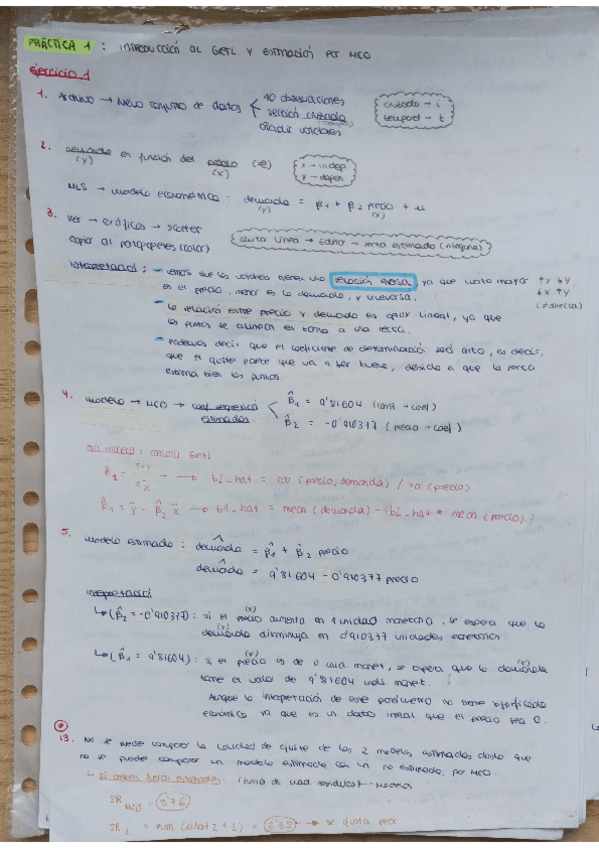 PRÁCTICA 1 : INTRODUCCIÓN AL GRETL Y ESTIMACIÓN POR MCO
Ejercicio 1
1. Archivo → Nuevo conjunto de datos
10 observaciones
sección cruzada
añadir valores
cruzado → i
temporal → t
2. demanda en función del precio (€)
(y) (x)
x → indep
y → depen
MLS → modelo econométrico : demanda = β1 + β2 precio + u
(y) (x)
3. Ver → Gráficos → scatter
Copiar al portapapeles (color)
quitar línea → Editar → recta estimada (ninguna)
Interpretación : - vemos que los valores tienen una relación inversa, ya que cuanto mayor
es el precio, menor es la demanda, y viceversa.
↑x ↓y
↓x ↑y
(≠ directa)
- La relación entre precio y demanda es aprox lineal, ya que
los puntos se alinean en torno a una recta.
- Podemos decir que el coeficiente de determinación será alto, es decir,
que el ajuste parece que va a ser bueno, debido a que la recta
estima bien los puntos.
4. modelo → MCO → coef regresión estimados
β̂1 = 9'81604 (const → coef)
β̂2 = -0'910377 (precio → coef)
consola Gretl
→ b2_hat = cov (precio, demanda) / var (precio)
β̂1 = ȳ - β̂2 x̄ → b1_hat = mean (demanda) - b2_hat * mean (precio)
5. modelo estimado : demanda^ = β̂1 + β̂2 precio
demanda^ = 9'81604 - 0'910377 precio
Interpretación
↳ (β̂2 = -0'910377) : si el precio aumenta en 1 unidad monetaria, se espera que la
(x)
demanda disminuya en 0'910377 unidades monetarias
(y)
↳ (β̂1 = 9'81604) : si el precio es de 0 unid. monet, se espera que la demanda
(x) (y)
tome el valor de 9'81604 unds. monet.
Aunque la interpretación de este parámetro no tiene significado
económico ya que es un dato irreal que el precio sea 0.
*
13. No se puede comparar la bondad de ajuste de los 2 modelos estimados dado que
no se puede comparar un modelo estimado con un no estimado, por MCO.
↳ si ambos fueran estimados :
SR MCO = 5'76
SR 1 = sum (uhat2^2) = 6'25 → se ajusta peor